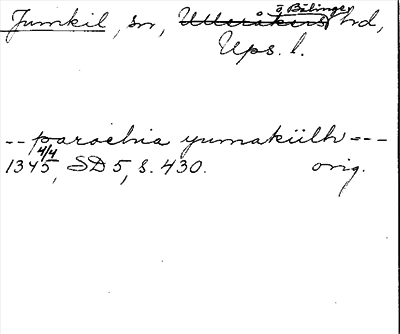 Jumkil, sn, Ulleråkers hrd,
Bälinge
Ups. l.
-- parochia yumakiilh ---
1345 4/4, SD 5, s. 430. orig.